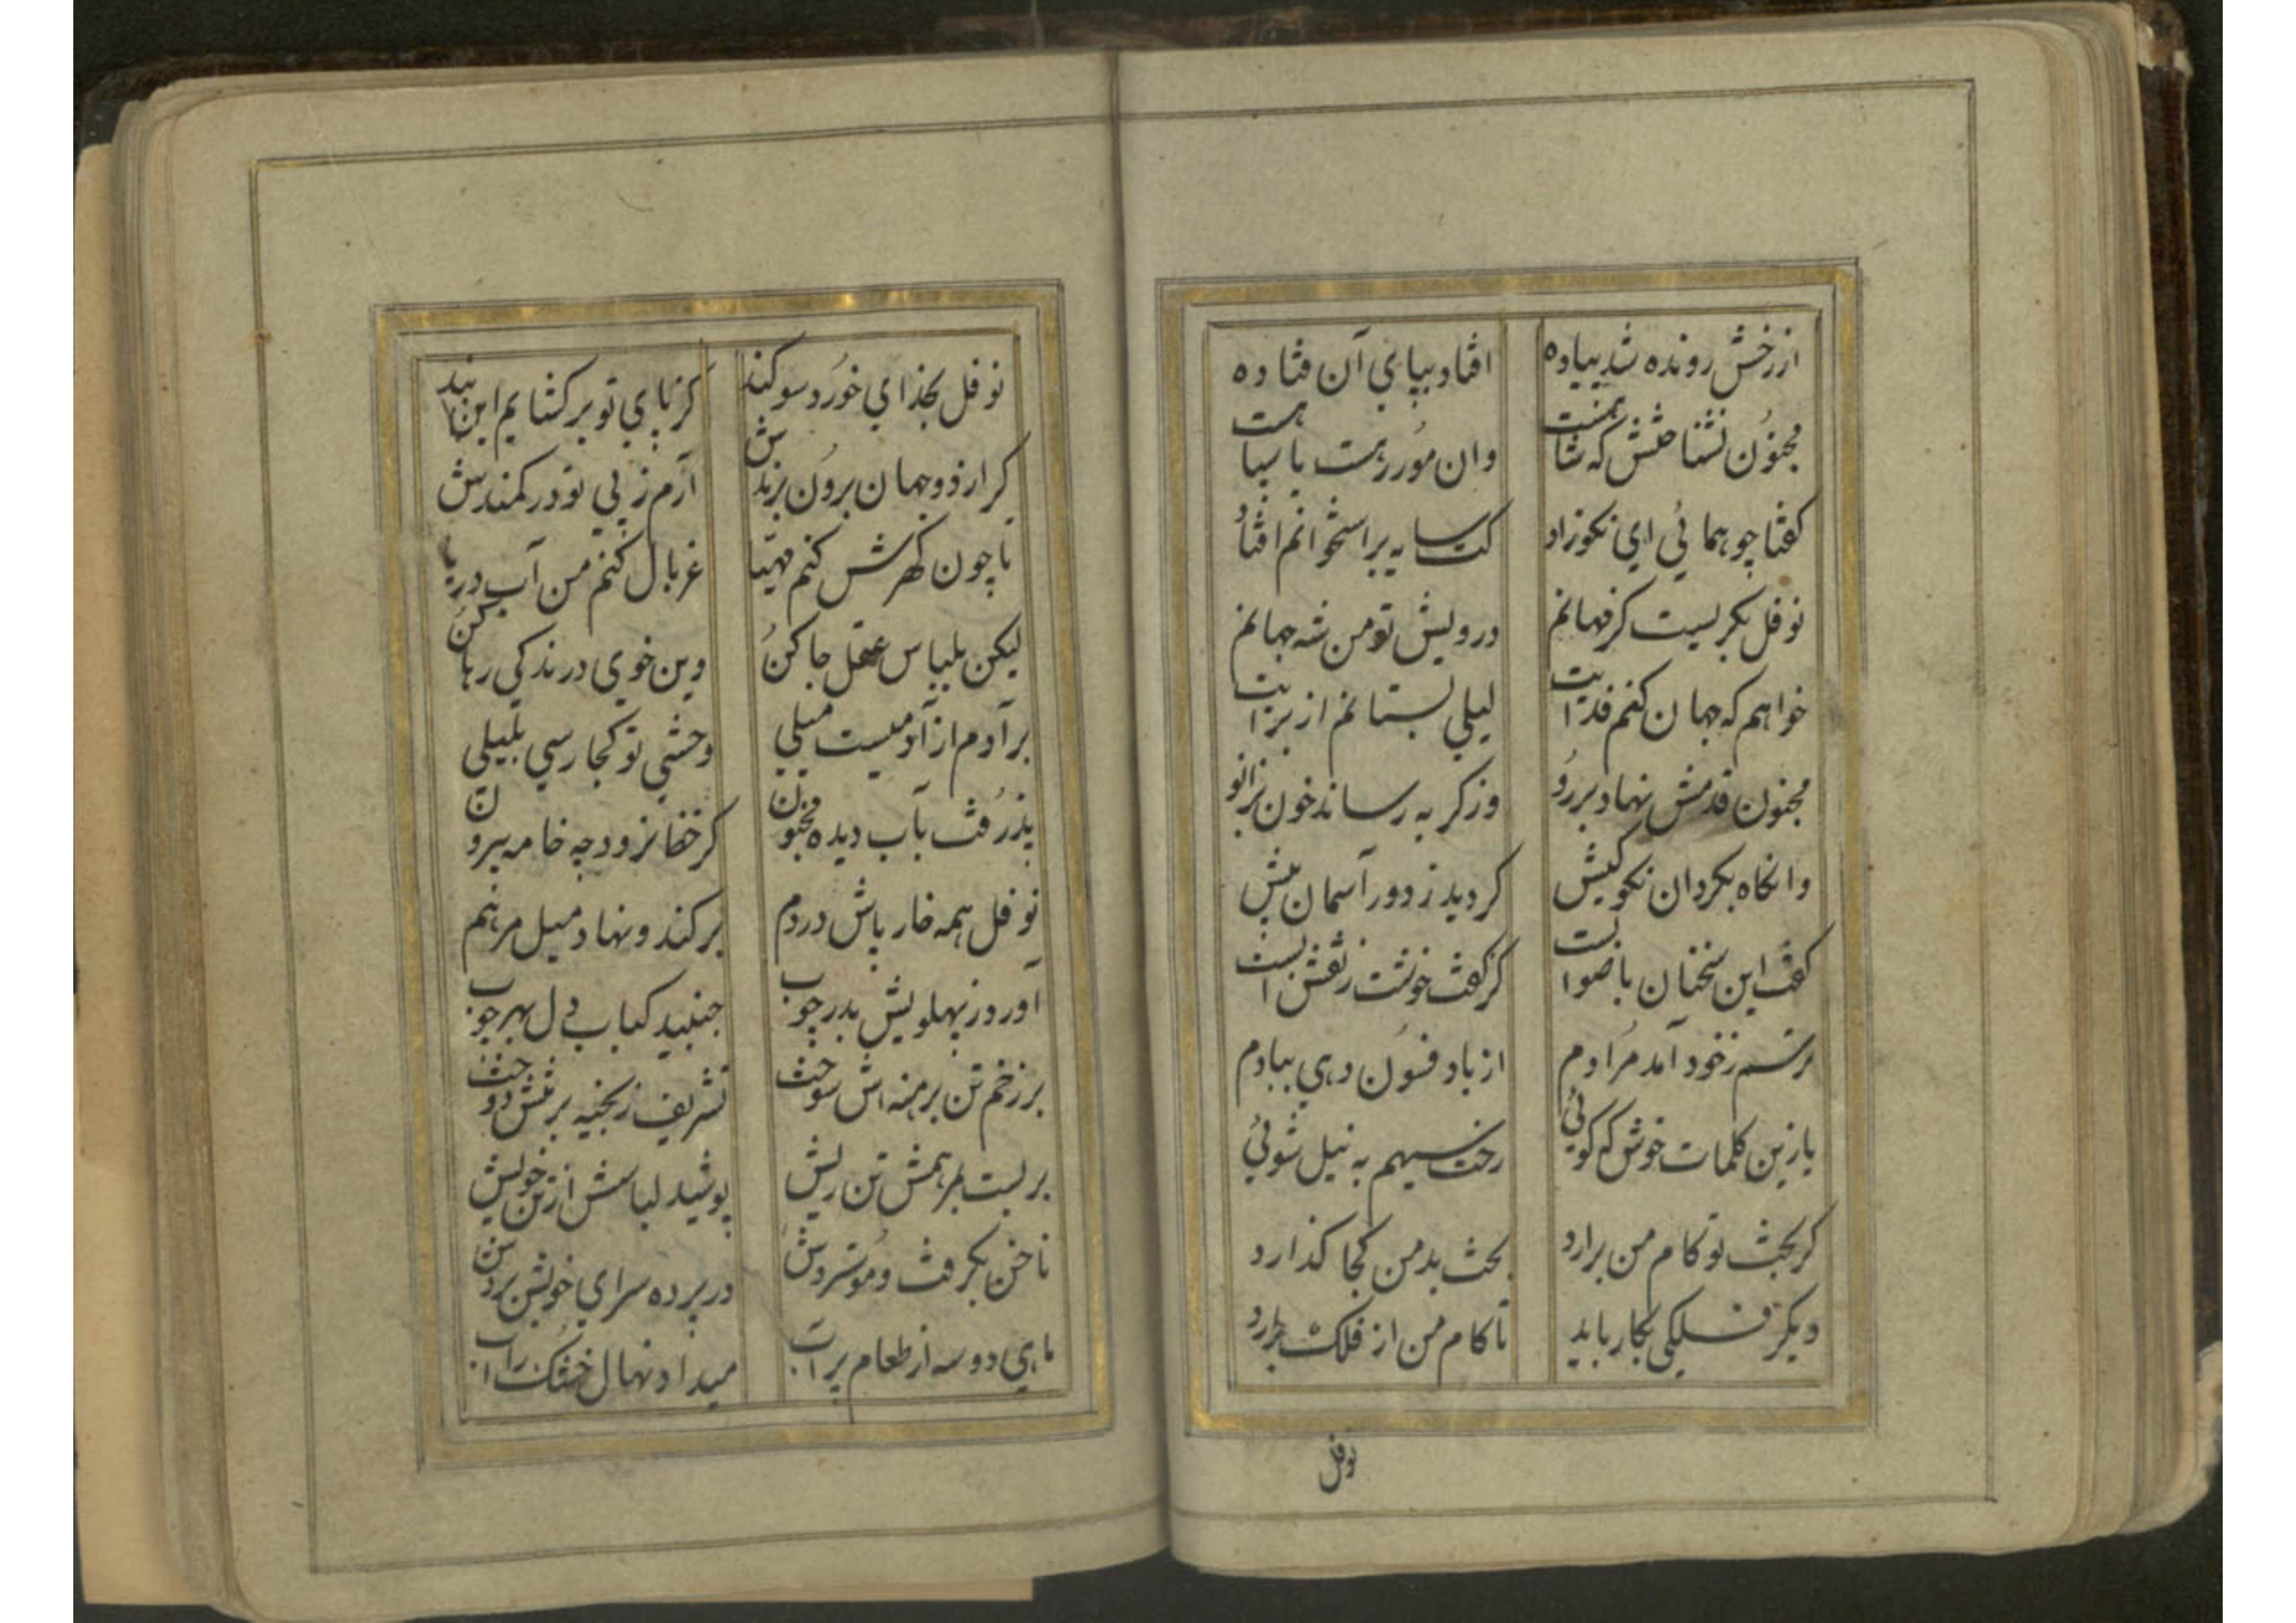 از رخش رونده شد پیاده افتاد بپای آن فتاده
مجنون نشناختش که شاهنست وان مور رهست یا سیاهست
گفتا چو همائی ای نکوزاد کت سایه بر استخوانم افتاد
نوفل بگریست کز فهانم درویش تو من شه جهانم
خواهم که جهان کنم فدایت لیلی بستانم از برایت
مجنون قدمش نهاد بر رو وز گریه رساند خون بزانو
وانگاه بگرد آن نکوکیش گردید ز دور آسمان بیش
گفت این سخنان با صوابست کز گفت خوشت زنقش ابست
ترسم زخود آمد مرادم از باد فسون دهی ببادم
یا زین کلمات خوش که گوئی رخت سیهم به نیل شوئی
گر بخت تو کام من برارد بخت بد من کجا گذارد
دیگر فلکی بکار باید تا کام من از فلک برارد
نوفل
نوفل بخذای خورد سوگند کز پای تو بر کشایم این بند
گر از دو جهان برون برندش آرم ز پی تو در کمندش
تا چون گهرش کنم مهیا غربال کنم من آب دریا
لیکن بلباس عقل جا کن وین خوی درندگی رها کن
برآدم از آدمیست میلی وحشی تو کجا رسی بلیلی
پذرفت بآب دیده مجنون کز خفانرود چه خامه بیرون
نوفل همه خار پاش دردم برکند و نهاد میل مرهم
آورد ز پهلویش بدر چوب جنبید کباب دل بهر چوب
بر زخم تن برهنه اش سوخت تشریف زبخیه بر تنش دوخت
بر بست بمرهمش تن ریش پوشید لباسش از تن خویش
ناخن بگرفت و مو ستردش در پرده سرای خویش بردش
ماهی دو سه از طعام پر اب میداد نهال خشک را اب